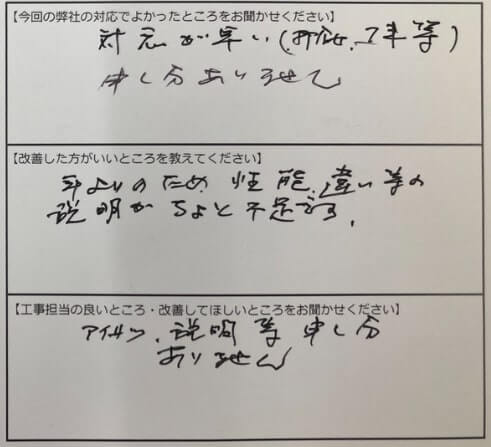 【今回の弊社の対応でよかったところをお聞かせください】
対応が早い(、工事等)
申し分ありません
【改善した方がいいところを教えてください】
年よりのため 性能、違い等の
説明がちょと不足です、
【工事担当の良いところ・改善してほしいところをお聞かせください】
アイサツ、説明等 申し分
ありません